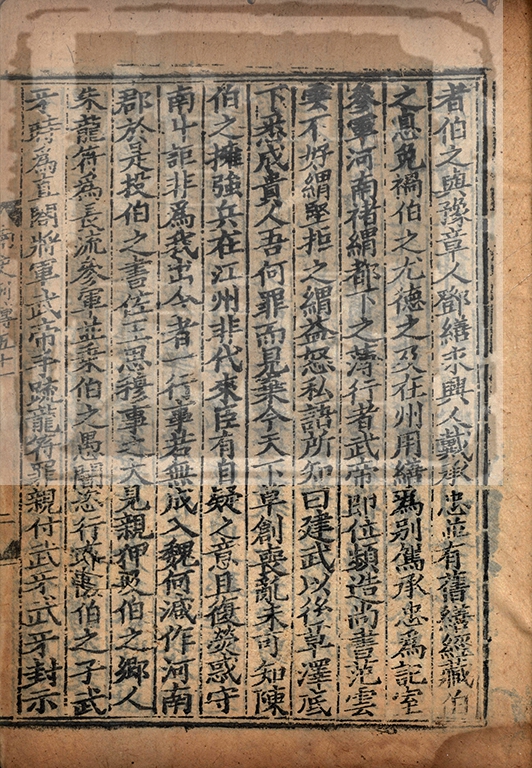 者伯之與豫章人鄧繕永興人戴承忠並有舊繕經藏伯
之息免禍伯之尤德之及在州用繕爲別駕承忠爲記室
參軍河南褚緭都下之薄行者武帝即位頻造尚書范雲
雲不好緭堅拒之緭益怒私語所知曰建武以後草澤底
下悉成貴人吾何罪而見棄今天下草創喪亂未可知陳
伯之擁強兵在江州非代來臣有自疑之意且復熒惑守
南斗詎非爲我出今者一行事若無成入魏何減作河南
郡於是投伯之書佐王思穆事之大見親狎及伯之鄉人
朱龍符爲長流參軍並乘伯之愚闇恣行伯之子武
牙時爲直閣將軍武帝手疏龍符罪親付武牙武牙封示
南史列傳五十一